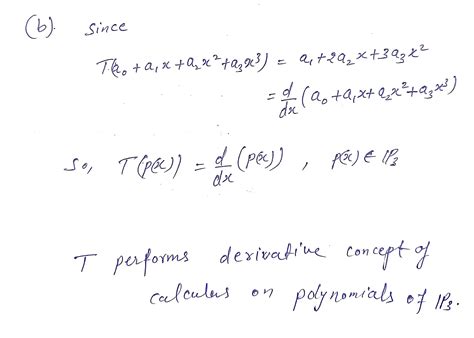 (b). since
T(a₀ + a₁x + a₂x² + a₃x³) = a₁ + 2a₂x + 3a₃x²
= d/dx (a₀ + a₁x + a₂x² + a₃x³)
So, T(p(x)) = d/dx (p(x)) , p(x) ∈ ℙ₃
T performs derivative concept of
calculus on polynomials of ℙ₃.